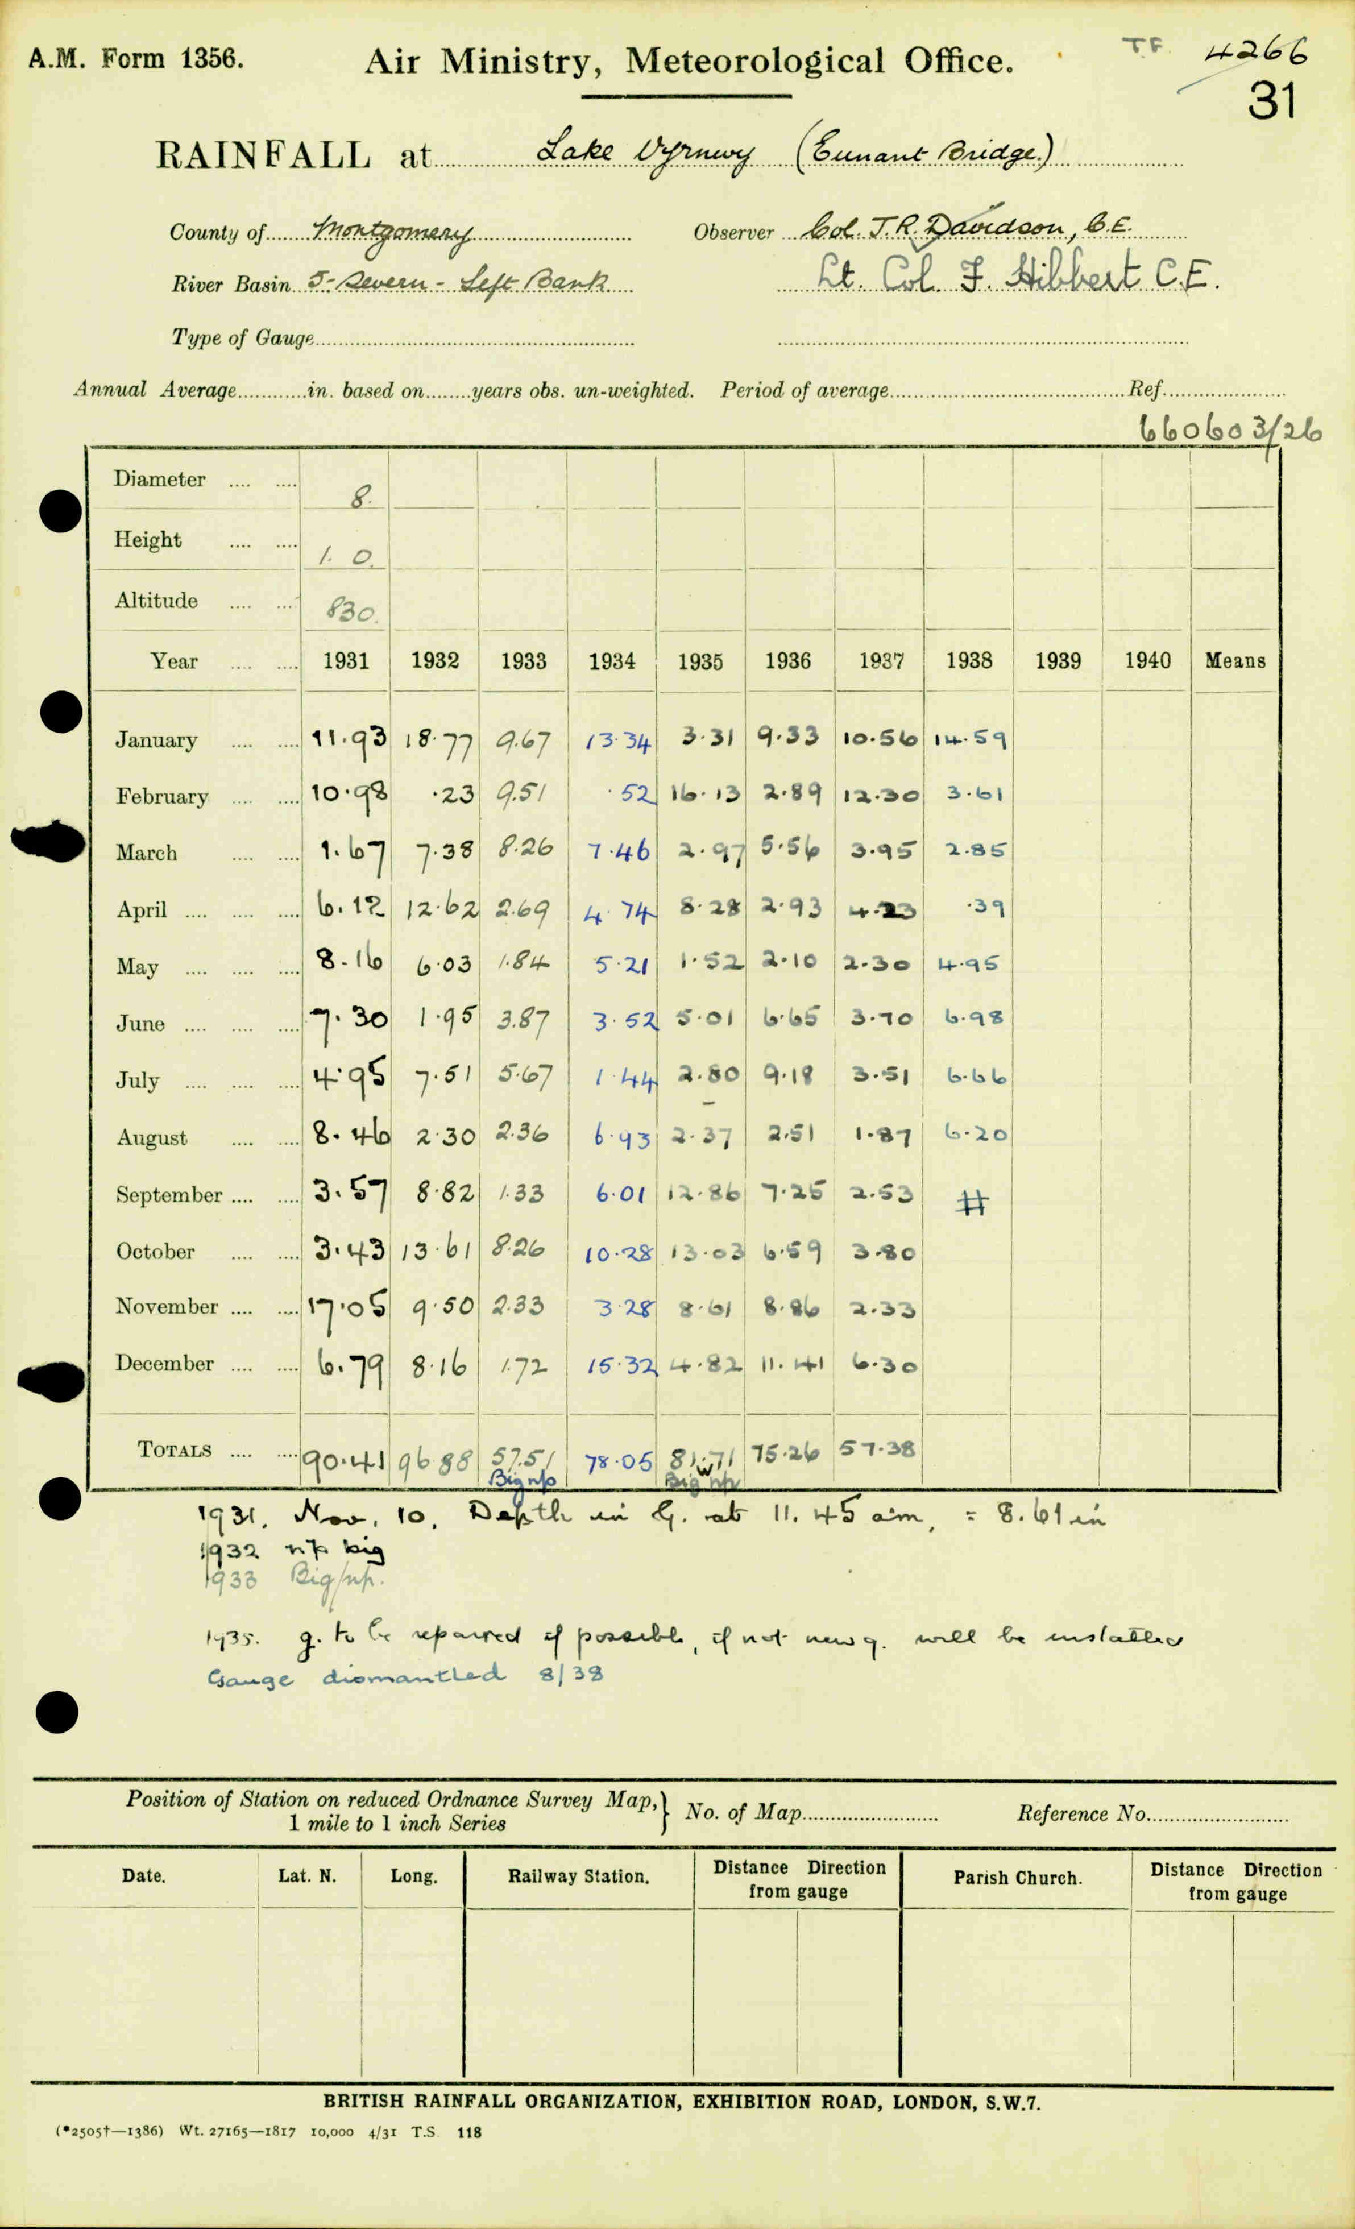 A.M. Form 1356.
Air Ministry, Meteorological Office.
T.F. 4266
31
RAINFALL at Lake Vyrnwy (Eunant Bridge)
County of Montgomery Observer Col. J.R. Davidson, C.E.
River Basin 5-Severn - Left Bank Lt. Col. F. Hibbert C.E.
Type of Gauge
Annual Average in. based on years obs. un-weighted. Period of average Ref.
660603/26
Diameter 8.
Height 1. 0.
Altitude 830.
Year 1931 1932 1933 1934 1935 1936 1937 1938 1939 1940 Means
January 11.93 18.77 9.67 13.34 3.31 9.33 10.56 14.59
February 10.98 .23 9.51 .52 16.13 2.89 12.30 3.61
March 1.67 7.38 8.26 7.46 2.97 5.56 3.95 2.85
April 6.12 12.62 2.69 4.74 8.28 2.93 4.23 .39
May 8.16 6.03 1.84 5.21 1.52 2.10 2.30 4.95
June 7.30 1.95 3.87 3.52 5.01 6.65 3.70 6.98
July 4.95 7.51 5.67 1.44 2.80 9.18 3.51 6.66
August 8.46 2.30 2.36 6.93 2.37 2.51 1.87 6.20
September 3.57 8.82 1.33 6.01 12.86 7.25 2.53 #
October 3.43 13.61 8.26 10.28 13.03 6.59 3.80
November 17.05 9.50 2.33 3.28 8.61 8.86 2.33
December 6.79 8.16 1.72 15.32 4.82 11.41 6.30
TOTALS 90.41 96.88 57.51 78.05 81.71 75.26 57.38
Big np Big np
1931. Nov. 10. Depth in G. at 11.45 am, = 8.61 in
1932 np big
1933 Big/np.
1935. g. to be repaired if possible, if not new g. will be installed
Gauge dismantled 8/38
Position of Station on reduced Ordnance Survey Map, 1 mile to 1 inch Series } No. of Map Reference No.
Date. Lat. N. Long. Railway Station. Distance Direction from gauge Parish Church. Distance Direction from gauge
BRITISH RAINFALL ORGANIZATION, EXHIBITION ROAD, LONDON, S.W.7.
(*2505†—1386) Wt. 27165—1817 10,000 4/31 T.S. 118